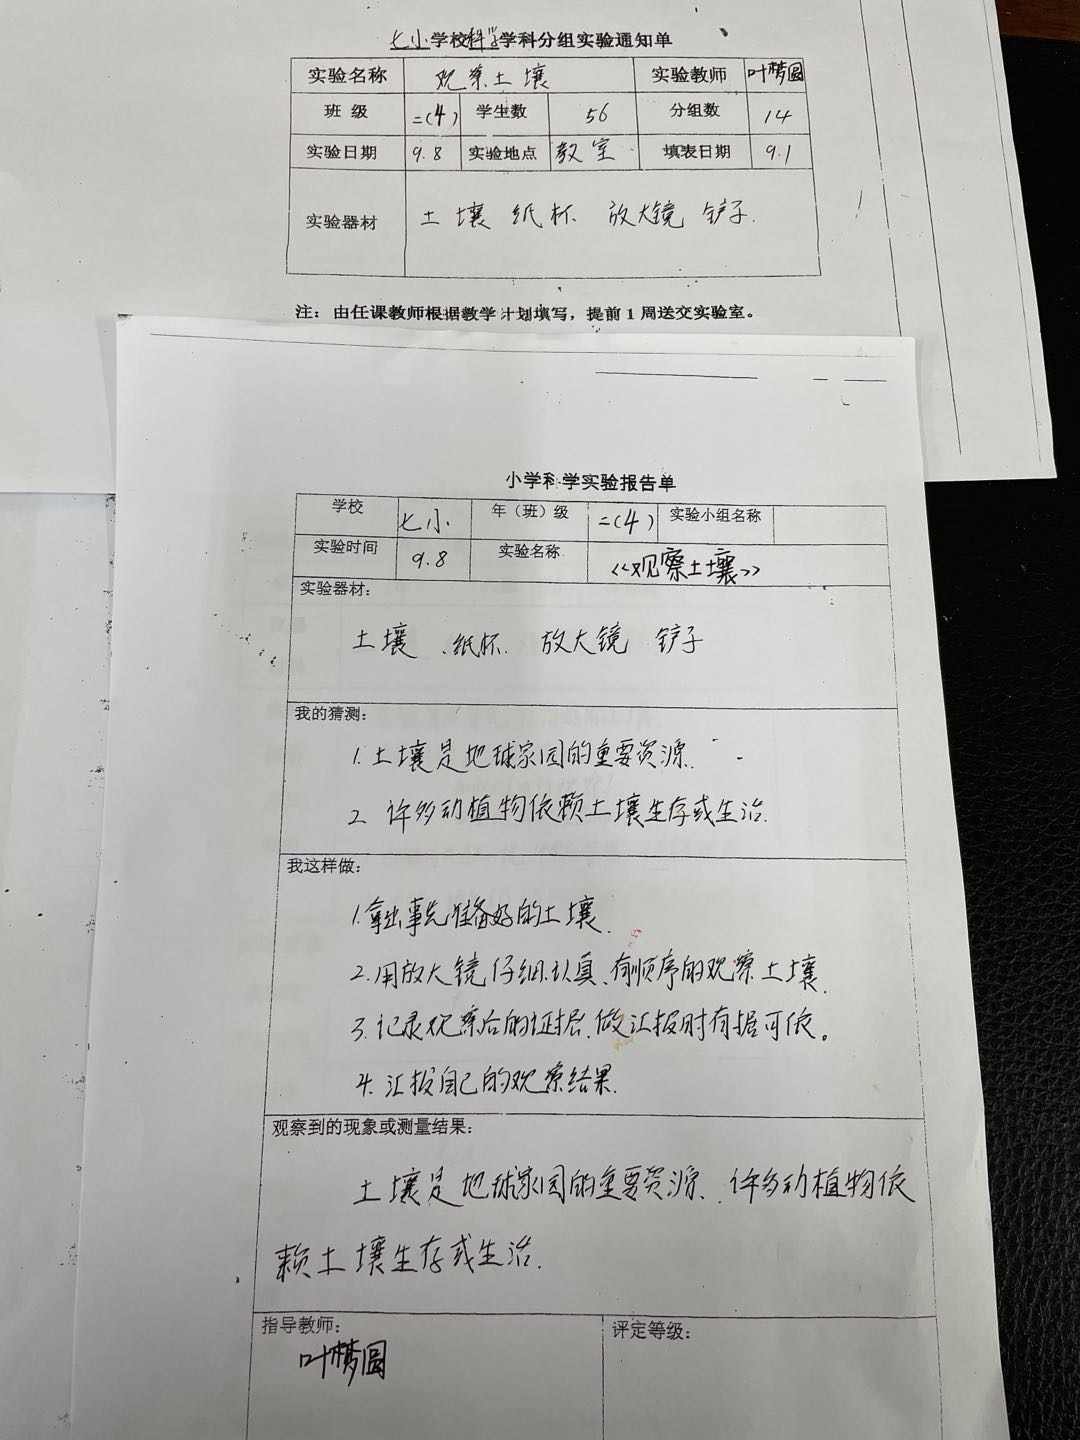 七小学校科学学科分组实验通知单
实验名称 观察土壤 实验教师 叶梦圆
班 级 二(4) 学生数 56 分组数 14
实验日期 9.8 实验地点 教室 填表日期 9.1
实验器材 土壤 纸杯 放大镜 铲子.
注：由任课教师根据教学计划填写，提前1周送交实验室。
小学科学实验报告单
学校 七小 年（班）级 二(4) 实验小组名称
实验时间 9.8 实验名称 《观察土壤》
实验器材：
土壤、纸杯、放大镜 铲子
我的猜测：
1.土壤是地球家园的重要资源.
2.许多动植物依赖土壤生存或生活.
我这样做：
1.拿出事先准备好的土壤.
2.用放大镜仔细.认真、有顺序的观察土壤.
3.记录观察后的证据.做汇报时有据可依。
4.汇报自己的观察结果.
观察到的现象或测量结果：
土壤是地球家园的重要资源、许多动植物依
赖土壤生存或生活.
指导教师： 评定等级：
叶梦圆